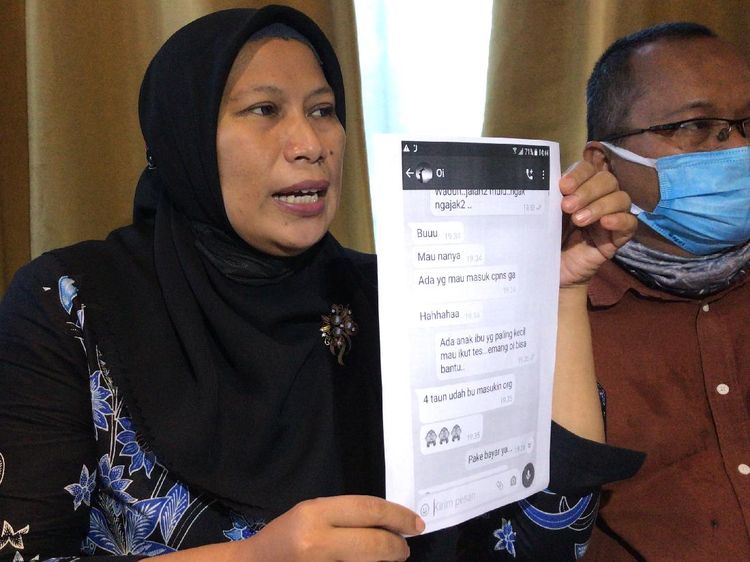 71%
Oi
Waduh..jalan2 mulu..ngak
ngajak2 ..
Buuu
19.34
Mau nanya
19.34
Ada yg mau masuk cpns ga
19.34
Hahhahaa
19.34
Ada anak ibu yg paling kecil
mau ikut tes...emang oi bisa
bantu..
4 taun udah bu masukin org
19.35
19.35
Pake bayar ya...
Kirim pesan